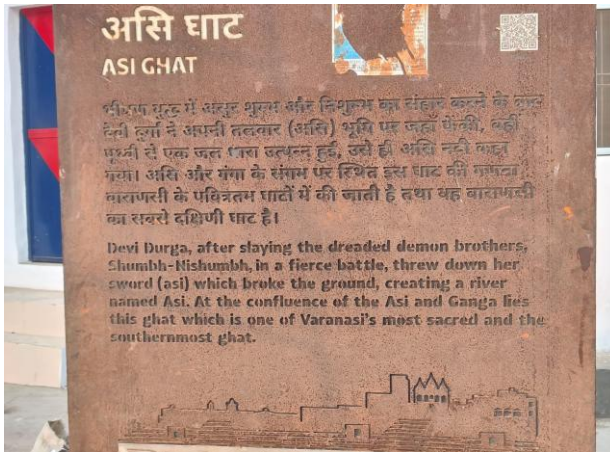 असि घाट
ASI GHAT
भीषण युद्ध में असुर शुम्भ और निशुम्भ का संहार करने के बाद
देवी दुर्गा ने अपनी तलवार (असि) भूमि पर जहाँ फेंकी, वहीं
पृथ्वी से एक जल धारा उत्पन्न हुई, उसे ही असि नदी कहा
गया। असि और गंगा के संगम पर स्थित इस घाट की गणना
वाराणसी के पवित्रतम घाटों में की जाती है तथा यह वाराणसी
का सबसे दक्षिणी घाट है।
Devi Durga, after slaying the dreaded demon brothers,
Shumbh-Nishumbh, in a fierce battle, threw down her
sword (asi) which broke the ground, creating a river
named Asi. At the confluence of the Asi and Ganga lies
this ghat which is one of Varanasi's most sacred and the
southernmost ghat.